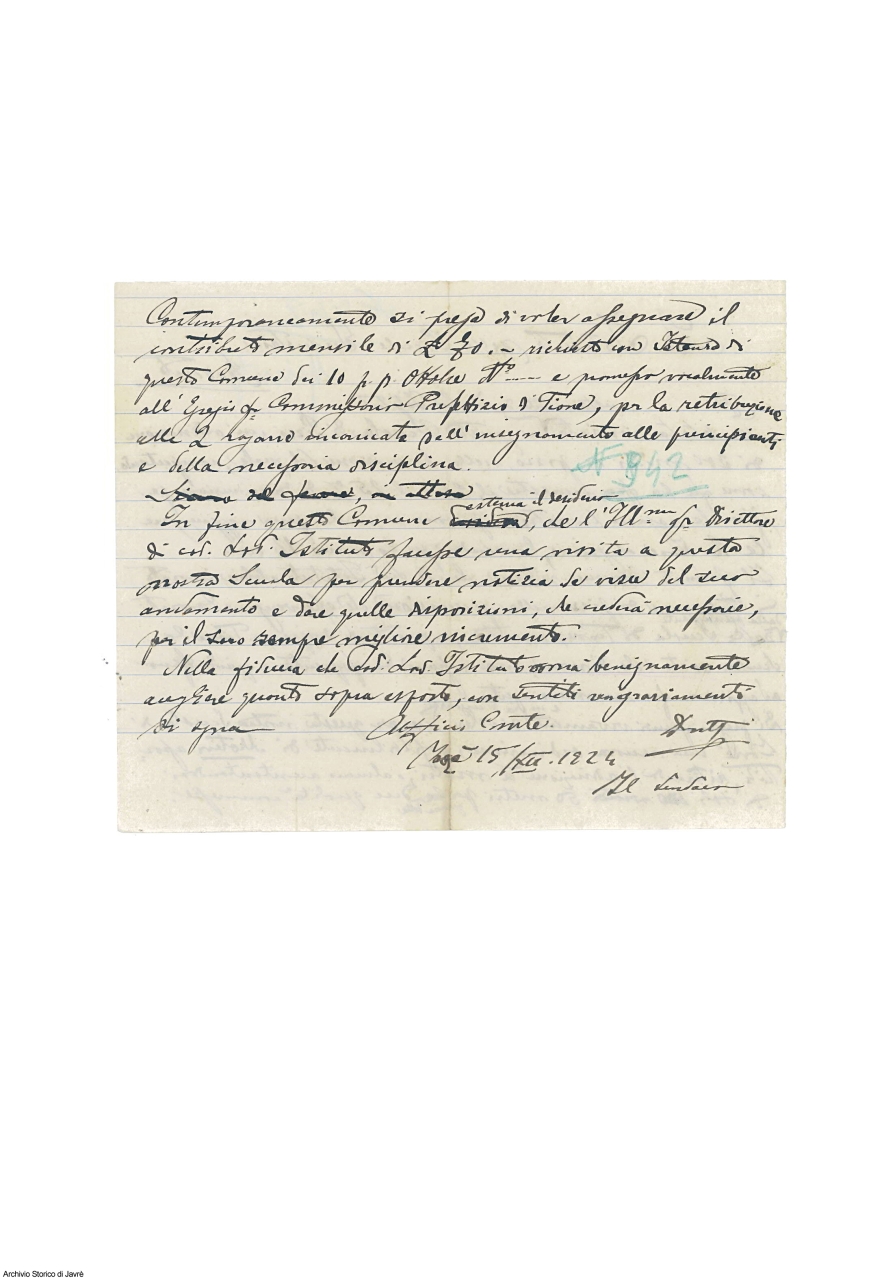 Contemporaneamente si prega di voler assegnare il
contributo mensile di £ 70.- richiesto con Istanza di
questo Comune dei 10 p. p. Ottobre N° ---- e promesso vocalmente
all'Egregio Sr. Commissario Prefettizio d Tione, per la retribuzione
alle 2 ragazze incaricate dell'insegnamento alle principianti
e della necessaria disciplina.
N 942
In fine questo Comune esterna il desiderio, che l'Ill.mo Sr. Direttore
di cod. Lod. Istituto facesse una visita a questa
nostra Scuola per prendere notizia de visu del suo
andamento e dare quelle disposizioni, che crederà necessarie,
per il suo sempre migliore incremento.
Nella fiducia che cod. Lod. Istituto vorrà benignamente
accogliere quanto sopra esposto, con sentiti ringraziamenti
si segna
Ufficio Cmle.
15/XII.1924
Il Sindaco
Archivio Storico di Javrè